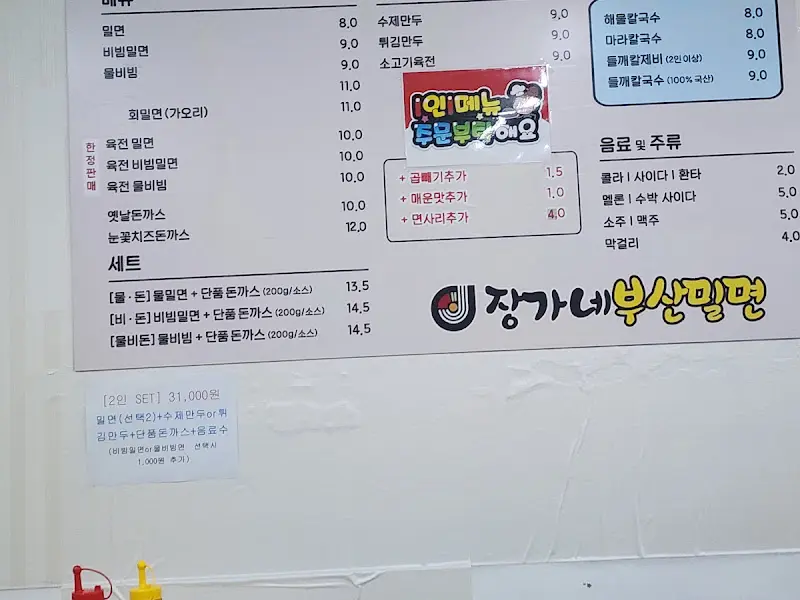 메뉴
밀면 8.0
비빔밀면 9.0
물비빔 9.0
11.0
회밀면(가오리) 11.0
한정판매
육전 밀면 10.0
육전 비빔밀면 10.0
육전 물비빔 10.0
옛날돈까스 10.0
눈꽃치즈돈까스 12.0
세트
[물·돈] 물밀면 + 단품 돈까스 (200g/소스) 13.5
[비·돈] 비빔밀면 + 단품 돈까스 (200g/소스) 14.5
[물비돈] 물비빔 + 단품 돈까스 (200g/소스) 14.5
수제만두 9.0
튀김만두 9.0
소고기육전 9.0
1인1메뉴
주문부탁해요
+ 곱빼기추가 1.5
+ 매운맛추가 1.0
+ 면사리추가 4.0
해물칼국수 8.0
마라칼국수 8.0
들깨칼제비 (2인 이상) 9.0
들깨칼국수 (100% 국산) 9.0
음료 및 주류
콜라 | 사이다 | 환타 2.0
멜론 | 수박 사이다 5.0
소주 | 맥주 5.0
막걸리 4.0
장가네부산밀면
[2인 SET] 31,000원
밀면(선택2)+수제만두or튀
김만두+단품돈까스+음료수
(비빔밀면or물비빔면 선택시
1,000원 추가)